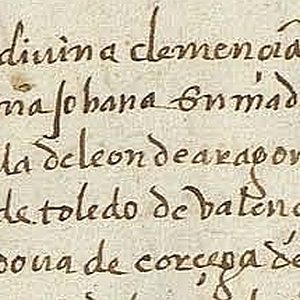 divina clemencia
ña Johana su mad
lla de leon de aragon
de toledo de valenc
dova de corçega de